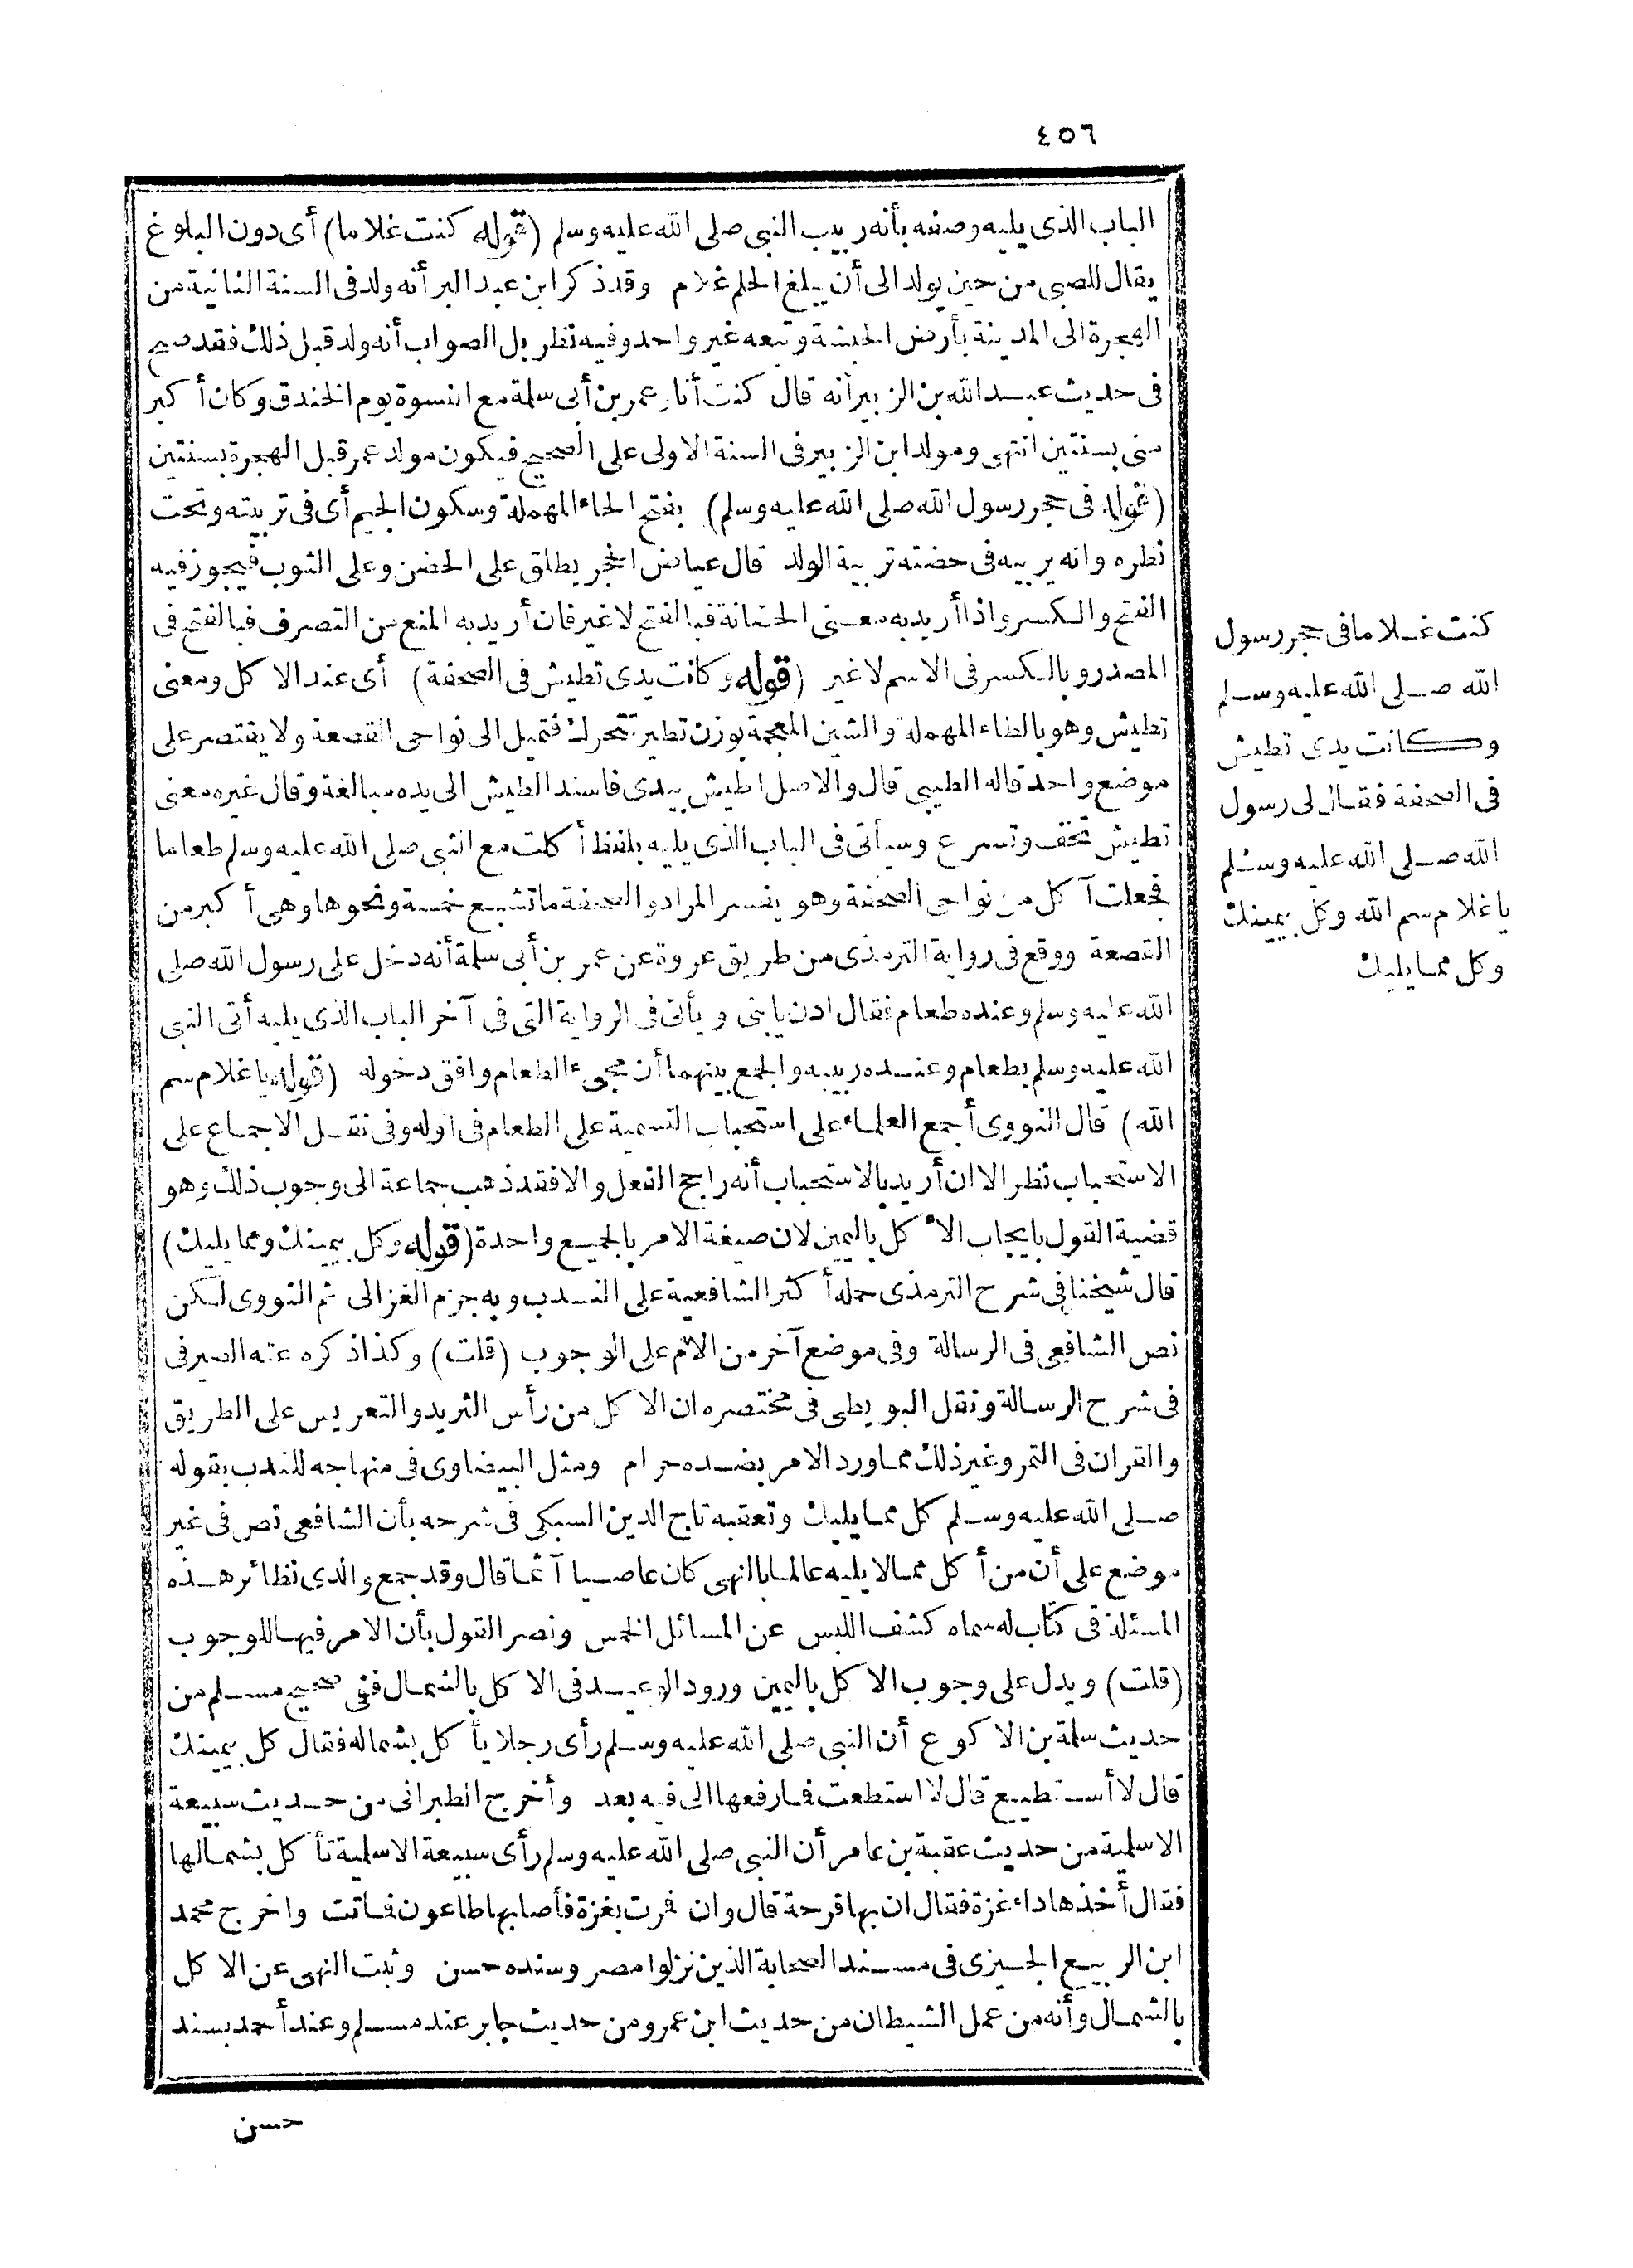 ٤٥٦
الباب الذى يليه وصفه بأنه ربيب النبى صلى الله عليه وسلم (قوله كنت غلاما) أى دون البلوغ
يقال للصبى من حين يولد الى أن يبلغ الحلم غلام وقد ذكر ابن عبد البر أنه ولد فى السنة الثانية من
الهجرة الى المدينة بأرض الحبشة وتبعه غير واحد وفيه نظر بل الصواب أنه ولد قبل ذلك فقد صح
فى حديث عبد الله بن الزبير أنه قال كنت أنا وعمر بن أبى سلمة مع النسوة يوم الخندق وكان أكبر
منى بسنتين انتهى ومولد ابن الزبير فى السنة الاولى على الصحيح فيكون مولد عمر قبل الهجرة بسنتين
(قوله فى حجر رسول الله صلى الله عليه وسلم) بفتح الحاء المهملة وسكون الجيم أى فى تربيته وتحت
نظره وانه يربيه فى حضنه تربية الولد قال عياض الحجر يطلق على الحضن وعلى الثوب فيجوز فيه
الفتح والكسر واذا أريد به معنى الحضانة فبالفتح لا غير فان أريد به المنع من التصرف فبالفتح فى
المصدر وبالكسر فى الاسم لا غير (قوله وكانت يدى تطيش فى الصحفة) أى عند الاكل ومعنى
تطيش وهو بالطاء المهملة والشين المعجمة بوزن تطير تتحرك فتميل الى نواحى القصعة ولا يقتصر على
موضع واحد قاله الطيبى قال والاصل اطيش بيدى فاسند الطيش الى يده مبالغة وقال غيره معنى
تطيش تخف وتسرع وسيأتى فى الباب الذى يليه بلفظ أكلت مع النبى صلى الله عليه وسلم طعاما
فجعلت آكل من نواحى الصحفة وهو يفسر المراد والصحفة ما تشبع خمسة ونحوها وهى أكبر من
القصعة ووقع فى رواية الترمذى من طريق عروة عن عمر بن أبى سلمة أنه دخل على رسول الله صلى
الله عليه وسلم وعنده طعام فقال ادن يا بنى ويأتى فى الرواية التى فى آخر الباب الذى يليه أتى النبى
الله عليه وسلم بطعام وعنده ربيبه والجمع بينهما أن مجىء الطعام وافق دخوله (قوله يا غلام سم
الله) قال النووى أجمع العلماء على استحباب التسمية على الطعام فى أوله وفى نقل الاجماع على
الاستحباب نظر الا ان أريد بالاستحباب أنه راجح الفعل والا فقد ذهب جماعة الى وجوب ذلك وهو
قضية القول بايجاب الأكل باليمين لان صيغة الامر بالجميع واحدة (قوله وكل بيمينك ومما يليك)
قال شيخنا فى شرح الترمذى حمله أكثر الشافعية على الندب وبه جزم الغزالى ثم النووى لكن
نص الشافعى فى الرسالة وفى موضع آخر من الأم على الوجوب (قلت) وكذا ذكره عنه الصيرفى
فى شرح الرسالة ونقل البويطى فى مختصره ان الاكل من رأس الثريد والتعريس على الطريق
والقران فى التمر وغير ذلك مما ورد الامر بضده حرام ومثل البيضاوى فى منهاجه للندب بقوله
صلى الله عليه وسلم كل مما يليك وتعقبه تاج الدين السبكى فى شرحه بأن الشافعى نص فى غير
موضع على أن من أكل مما لا يليه عالما بالنهى كان عاصيا آثما قال وقد جمع والدى نظائر هذه
المسئلة فى كتاب له سماه كشف اللبس عن المسائل الخمس ونصر القول بأن الامر فيها للوجوب
(قلت) ويدل على وجوب الاكل باليمين ورود الوعيد فى الاكل بالشمال ففى صحيح مسلم من
حديث سلمة بن الاكوع أن النبى صلى الله عليه وسلم رأى رجلا يأكل بشماله فقال كل بيمينك
قال لا أستطيع قال لا استطعت فما رفعها الى فيه بعد وأخرج الطبرانى من حديث سبيعة
الاسلمية من حديث عقبة بن عامر أن النبى صلى الله عليه وسلم رأى سبيعة الاسلمية تأكل بشمالها
فقال أخذها داء غزة فقال ان بها قرحة قال وان فمرت بغزة فأصابها طاعون فماتت واخرج محمد
ابن الربيع الجيزى فى مسند الصحابة الذين نزلوا مصر وسنده حسن وثبت النهى عن الاكل
بالشمال وأنه من عمل الشيطان من حديث ابن عمر ومن حديث جابر عند مسلم وعند أحمد بسند
حسن
كنت غلاما فى حجر رسول
الله صلى الله عليه وسلم
وكانت يدى تطيش
فى الصحفة فقال لى رسول
الله صلى الله عليه وسلم
يا غلام سم الله وكل بيمينك
وكل مما يليك